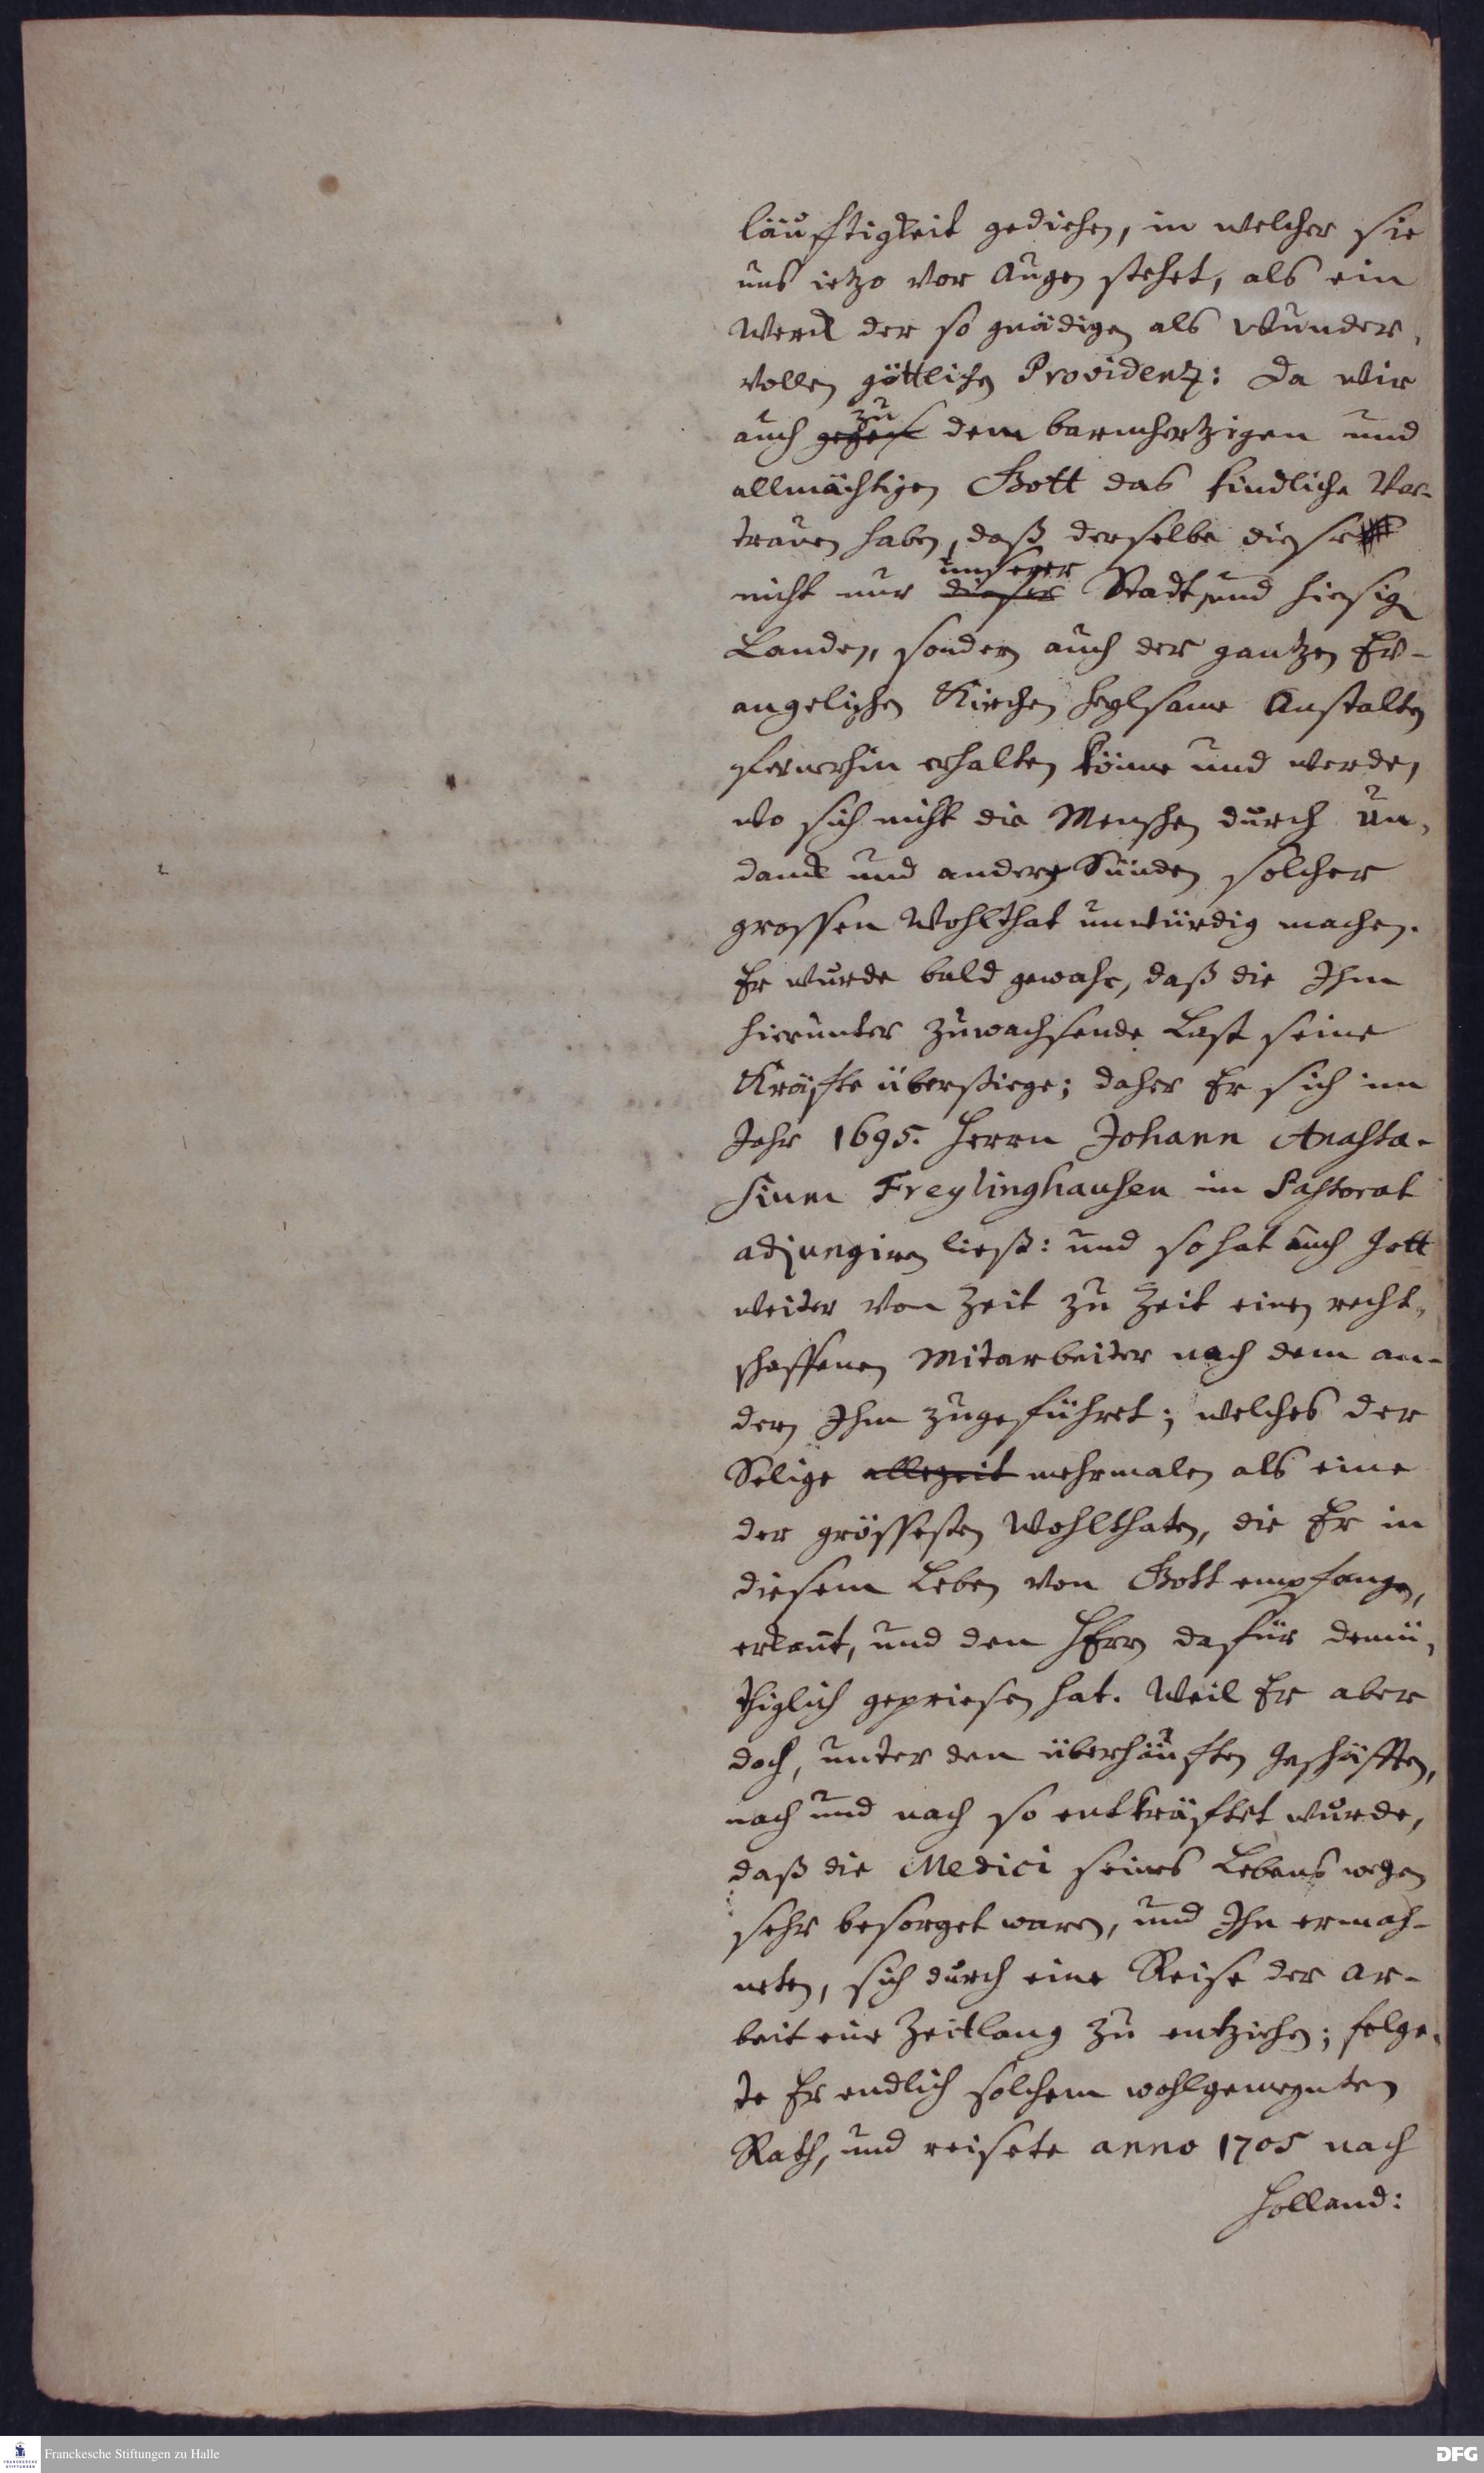 läufftigkeit gediehen, in welcher sie
uns ietzo vor Augen stehet, als ein
Werck der so gnädigen als Wunder-
vollen göttlichen Providentz: Da wir
zu
auch gegen dem barmhertzigen und
allmächtigen Gott das kindliche Ver-
trauen haben, daß derselbe diese
unserer
nicht nur dieser Stadt, und hiesigen
Landen, sondern auch der gantzen Ev-
angelischen Kirchen heylsame Anstalten
fernerhin erhalten könne und werde,
wo sich nicht die Menschen durch Un-
danck und andere Sünden solcher
grossen Wohlthat unwürdig machen.
Er wurde bald gewahr, daß die Ihm
hierunter zuwachsende Last seine
Kräfte übersteige; daher Er sich im
Jahr 1695. Herrn Johann Anasta-
sium Freylinghausen im Pastorat
adjungiren ließ: und so hat auch Gott
weiter von Zeit zu Zeit einen recht-
schaffenen Mitarbeiter nach dem an-
dern Ihm zugeführet; welches der
Selige allezeit mehrmalen als eine
der grössesten Wohlthaten, die Er in
diesem Leben von Gott empfangen,
erkañt, und den HErrn dafür demü-
thiglich gepriesen hat. Weil Er aber
doch, unter den überhäuften Geschäfften,
nach und nach so entkräftet wurde,
daß die Medici seines Lebens wegen
sehr besorget waren, und Ihn ermah-
neten, sich durch eine Reise der Ar-
beit eine Zeitlang zu entziehen; folge-
te Er endlich solchem wohlgemeynten
Rath, und reisete anno 1705 nach
Holland:
Franckesche Stiftungen zu Halle
FRANCKESCHE STIFTUNGEN
DFG